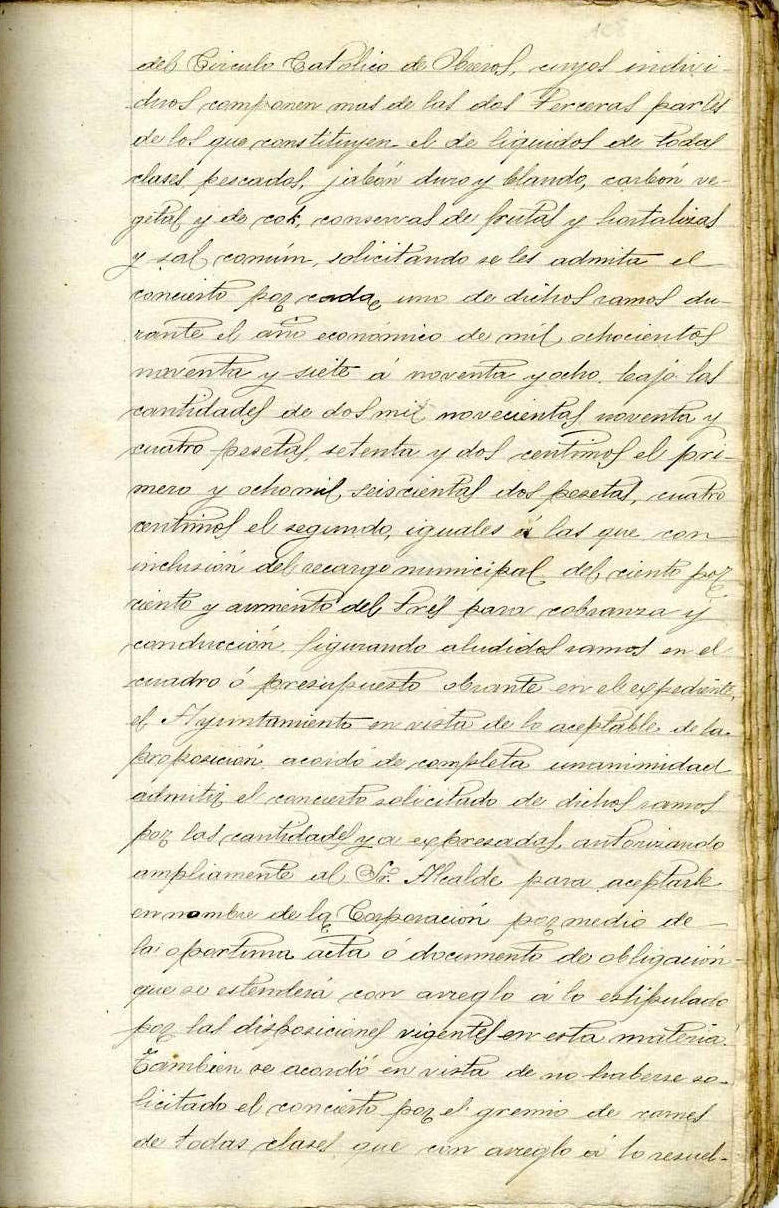 168
del Circulo Católico de Obreros, cuyos indivi-
duos componen mas de las dos terceras partes
de los que constituyen el de liquidos de todas
clases, pescados, jabón duro y blando, carbón ve-
getal y de cok, conservas de frutas y hortalizas
y sal común, solicitando se les admita el
concierto por cada uno de dichos ramos du-
rante el año económico de mil ochocientos
noventa y siete á noventa y ocho, bajo las
cantidades de dos mil novecientas noventa y
cuatro pesetas, setenta y dos centimos el pri-
mero y ocho mil seiscientas dos pesetas, cuatro
centimos el segundo, iguales á las que con
inclusión del recargo municipal del ciento por
ciento y aumento del tres para cobranza y
conducción, figurando aludidos ramos en el
cuadro ó presupuesto obrante en el expediente,
el Ayuntamiento en vista de lo aceptable de la
proposición, acordó de completa unanimidad
admitir el concierto solicitado de dichos ramos
por las cantidades ya expresadas, autorizando
ampliamente al Sr. Alcalde para aceptarle
en nombre de la Corporación por medio de
la oportuna acta ó documento de obligación
que se estenderá con arreglo á lo estipulado
por las disposiciones vigentes en esta materia.
Tambien se acordó en vista de no haberse so-
licitado el concierto por el gremio de carnes
de todas clases que con arreglo á lo resuel-